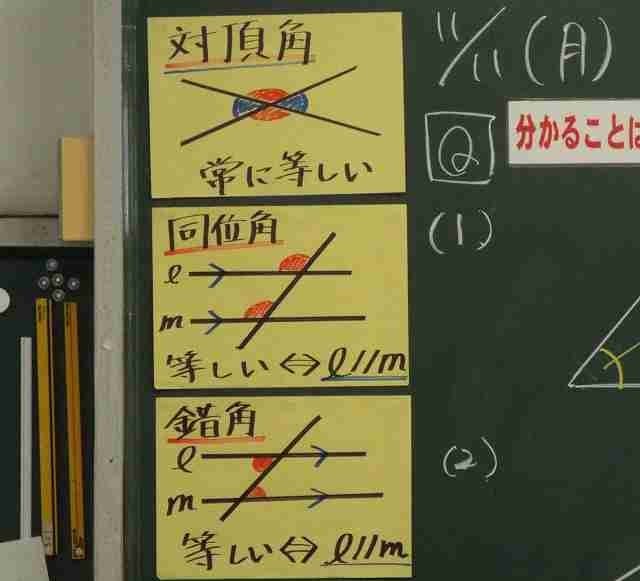 対頂角
常に等しい
同位角
l
m
等しい⇔l//m
錯角
l
m
等しい⇔l//m
11/11(月)
Q
分かることは
(1)
(2)